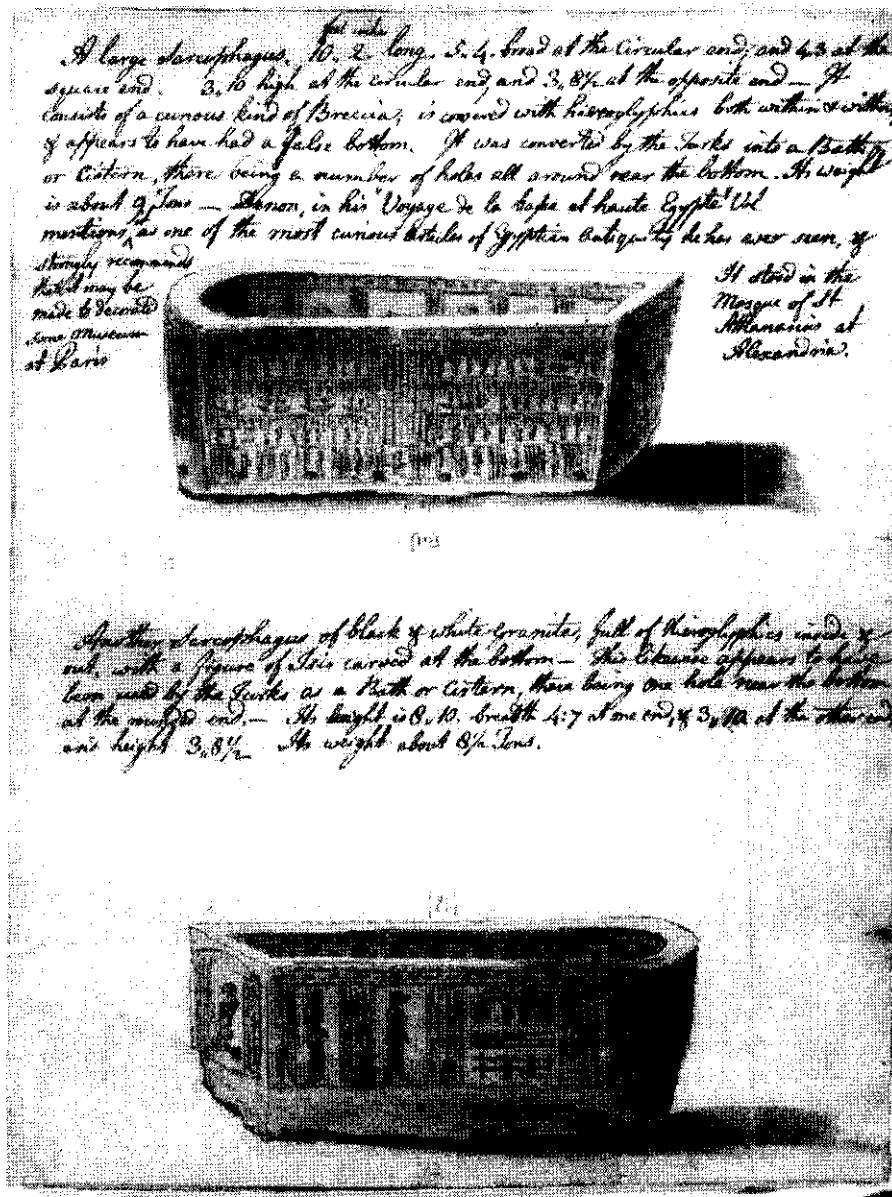 feet inches
A large Sarcophagus. 10. 2 long. 5. 4. broad at the Circular end, and 4.3 at the
square end. 3,,10 high at the circular end, and 3,,8½ at the opposite end — It
Consists of a curious kind of Breccia; is covered with hieroglyphics both within & without
& appears to have had a false bottom. It was converted by the Turks into a Bath
or Cistern, there being a number of holes all around near the bottom. Its weight
is about 9 Tons — Denon, in his "Voyage de la basse et haute Egypte" Vol
mentions, as one of the most curious Articles of Egyptian Antiquity he has ever seen, &
strongly recommends
that it may be
made to decorate
some Museum
at Paris
It stood in the
Mosque of St
Athanasius at
Alexandria.
Another Sarcophagus of black & white Granite, full of Hieroglyphics inside &
out, with a figure of Isis carved at the bottom — this likewise appears to have
been used by the Turks as a Bath or Cistern, there being one hole near the bottom
at the rounded end. — Its height is 8,,10. breadth 4:7 at one end, & 3,,10 at the other end
and height 3,,8½ Its weight about 8½ Tons.